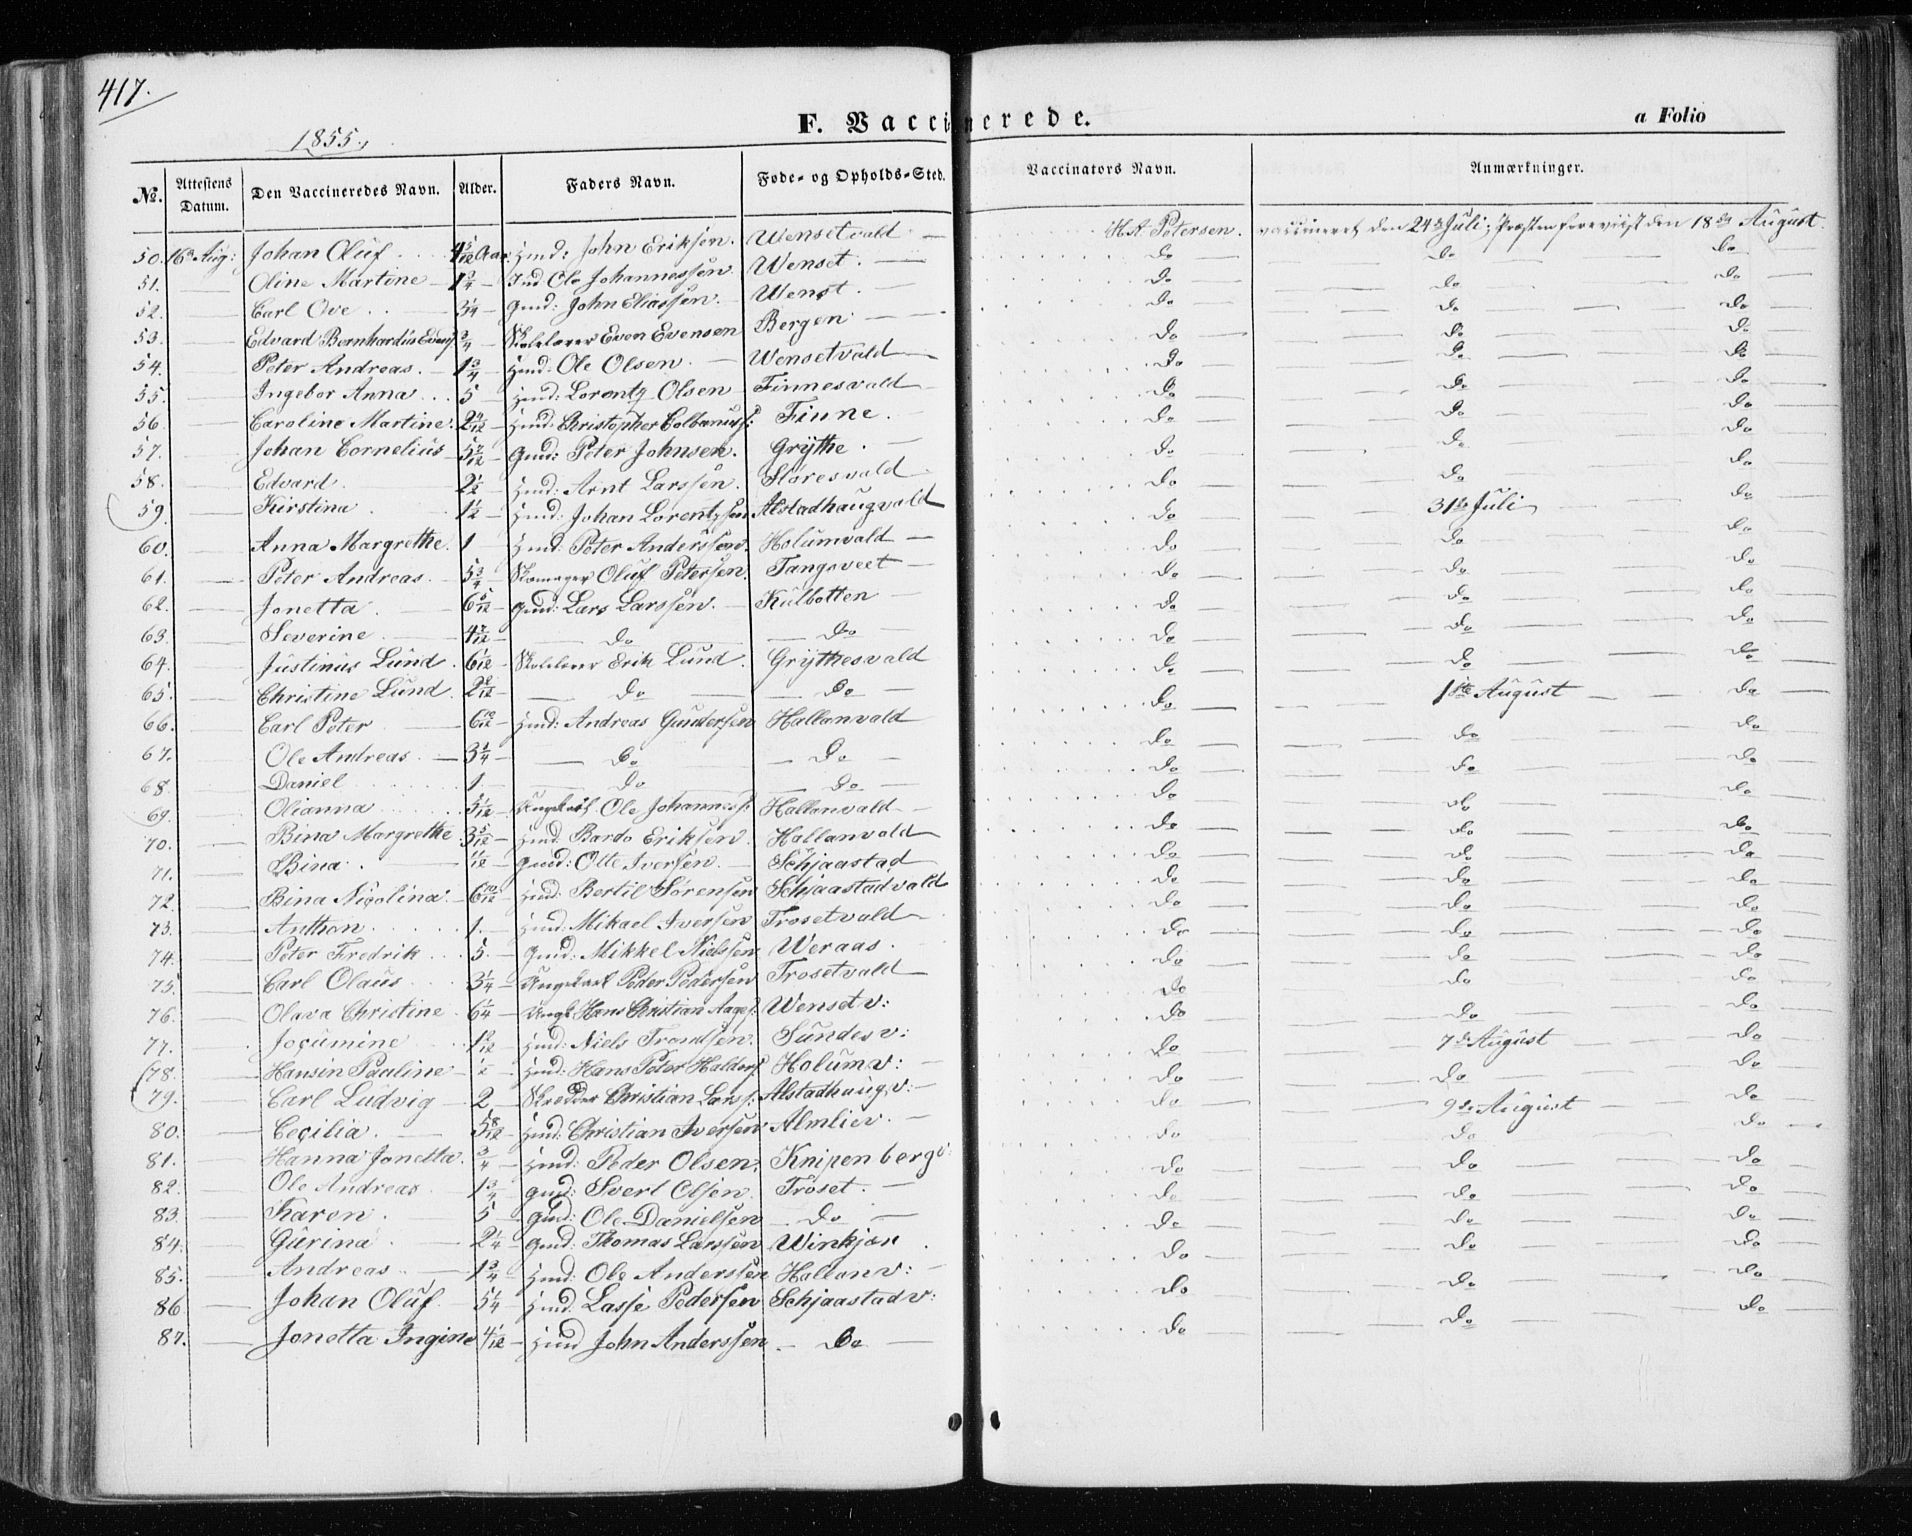 417.
1855.
F. Vaccinerede.
a Folio
No. Attestens Datum. Den Vaccineredes Navn. Alder. Faders Navn. Føde- og Opholds-Sted. Vaccinators Navn. Anmærkninger.
50. 16de Aug: Johan Oluf 4 5/12 Aar Hmd: John Eriksen. Wensetvald H. A. Petersen. vaccineret den 24de Juli; Præsten foreviist den 18de August.
51. Oline Martine 1 3/4 Ind Ole Johannessen Wenset. Do Do Do
52. Carl Ove 3 1/4 Gmd: John Eliassen Wenst. Do Do Do
53. Edvard Bernhardus Evens. 3/4 Skolelærer Even Evensen Bergen Do Do Do
54. Peter Andreas. 1 3/4 Hmd: Ole Olsen. Wensetvald Do Do Do
55. Ingebor Anna 5 Hmd: Lorentz Olsen Finnesvald Do Do Do
56. Caroline Martine. 2 4/12 Hmd: Christopher Colbanus: Finne. Do Do Do
57. Johan Cornelius 5 7/12 Gmd: Peter Johnsen. Grÿthe Do Do Do
58. Edvard 2 1/2 Hmd: Arnt Larssen. Støresvald Do Do Do
59. Kirstina 1 1/2 Hmd: Johan Lorentzsen Alstadhaugvald Do 31te Juli Do
60. Anna Margrethe. 1 Hmd: Peter Anderssen. Holumvald Do Do Do
61. Peter Andreas 5 3/4 Skomager Oluf Petersen. Tangsveet Do Do Do
62. Jonetta 6 5/12 Gmd: Lars Larssen. Kulbotten Do Do Do
63. Severine 4 7/12 Do Do Do Do Do
64. Justinus Lund 6 1/12 Skolelærer Erik Lund Grÿthesvald Do Do Do
65. Christine Lund 2 2/12 Do Do Do 1ste August Do
66. Carl Peter 6 10/12 Hmd: Andreas Gundersen Hallanvald Do Do Do
67. Ole Andreas 3 1/4 Do Do Do Do Do
68. Daniel 1 Do Do Do Do Do
69. Olianna 5 1/12 Ungkarl Ole Johanness: Hallanvald Do Do Do
70. Bina Margrethe 3 5/12 Hmd Bardo Eriksen Hallanvald Do Do Do
71. Bina 11/12 Gmd: Olte Iversen Schjaastad Do Do Do
72. Bina Nicolina 6 10/12 Hmd: Bertil Sørensen Schjaastadvald Do Do Do
73. Anthon 1 Hmd: Mikael Iversen Trosetvald Do Do Do
74. Peter Fredrik 5 Gmd: Mikkel Nielssen Weraas Do Do Do
75. Carl Olaus 3 1/4 Ungekarl Peder Pedersen Trosetvald Do Do Do
76. Olava Christine 6 1/4 Ungk Hans Christian Aages: Wenset v: Do Do Do
77. Jocumine 1 2/12 Hmd: Niels Trondsen. Sundes v: Do 7de August Do
78. Hansin Pauline 1/2 Hmd: Hans Peter Halders Holum v: Do Do Do
79. Carl Ludvig 2 Skredder Christian Larss: Alstadhaug v: Do 9de August Do
80. Cecilia. 5 8/12 Hmd: Christian Iversen Almlie v. Do Do Do
81. Hanna Jonetta. 3/4 Hmd: Peder Olsen. Knipenberg v: Do Do Do
82. Ole Andreas 1 3/4 Gmd: Sverl Olsen. Troset. Do Do Do
83. Karen. 5 Gmd: Ole Danielsen Do Do Do Do
84. Gurina 2 1/4 Gmd: Thomas Larssen Winkjen Do Do Do
85. Andreas 1 3/4 Hmd: Ole Anderssen Hallan v: Do Do Do
86 Johan Oluf 5 1/4 Hmd. Lasse Pedersen Schjaastad v: Do Do Do
87. Jonetta Ingine 4/12 Hmd John Anderssen Do Do Do Do